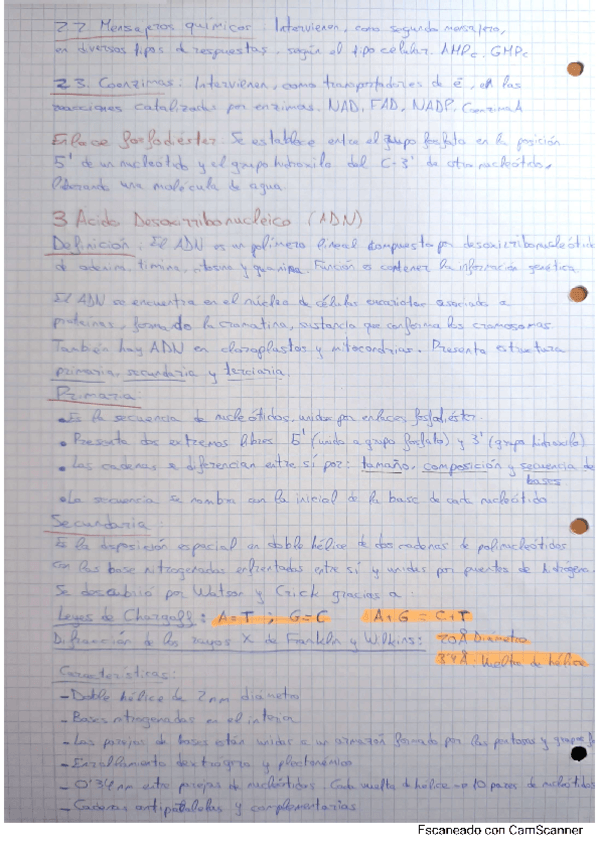 2.2 Mensajeros químicos: Intervienen, como segundo mensajero,
en diversos tipos de respuestas, según el tipo celular. AMPc, GMPc
2.3. Coenzimas: Intervienen, como transportadores de é, en las
reacciones catalizadas por enzimas. NAD, FAD, NADP, Coenzima A
Enlace fosfodiéster. Se establece entre el grupo fosfato en la posición
5' de un nucleótido y el grupo hidroxilo del C-3' de otro nucleótido,
liberando una molécula de agua.
3 Acido Desoxirribonucleico (ADN)
Definición: El ADN es un polímero lineal compuesto por desoxirribonucleótid
de adenina, timina, citosina y guanina. Función es contener la información genética
El ADN se encuentra en el núcleo de células eucariotas asociado a
proteínas, formando la cromatina, sustancia que conforma los cromosomas.
También hay ADN en cloroplastos y mitocondrias. Presenta estructura
primaria, secundaria y terciaria.
Primaria:
• Es la secuencia de nucleótidos, unidos por enlaces fosfodiéster.
• Presenta dos extremos libres 5' (unido a grupo fosfato) y 3' (grupo hidroxilo)
• Las cadenas se diferencian entre sí por: tamaño, composición y secuencia de
bases
• La secuencia se nombra con la inicial de la base de cada nucleótido
Secundaria:
Es la disposición espacial en doble hélice de dos cadenas de polinucleótidos
con las base nitrogenadas enfrentadas entre sí y unidas por puentes de hidrógeno.
Se descubrió por Watson y Crick gracias a:
Leyes de Chargaff: A=T ; G=C A+G = C+T
Difracción de los rayos X de Franklin y Wilkins: 20Å Diámetro
34Å. Vuelta de hélice
Características:
- Doble hélice de 2nm diámetro
- Bases nitrogenadas en el interior
- Las parejas de bases están unidas a un armazón formado por las pentosas y grupos
- Enrollamiento dextrógiro y plectonémico
- 0'34 nm entre parejas de nucleótidos. Cada vuelta d hélice 10 pares de nucleótidos
- Cadenas antiparalelas y complementarias
Escaneado con CamScanner